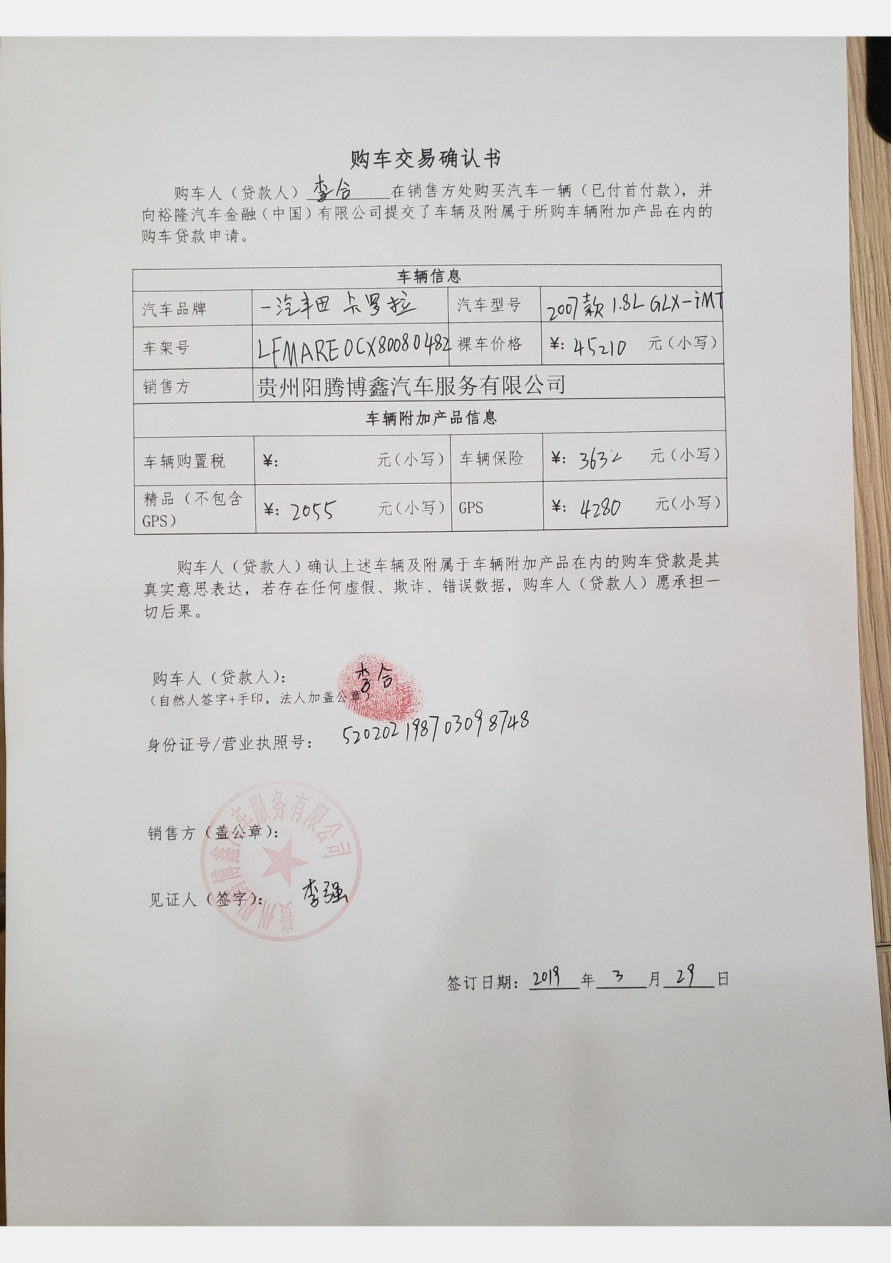 购车交易确认书
购车人（贷款人）李合在销售方处购买汽车一辆（已付首付款），并
向裕隆汽车金融（中国）有限公司提交了车辆及附属于所购车辆附加产品在内的
购车贷款申请。
车辆信息
汽车品牌 一汽丰田 卡罗拉 汽车型号 2007款 1.8L GLX-iMT
车架号 LFMARE0CX80080482 裸车价格 ¥：45210 元（小写）
销售方 贵州阳腾博鑫汽车服务有限公司
车辆附加产品信息
车辆购置税 ¥： 元（小写） 车辆保险 ¥：3632 元（小写）
精品（不包含GPS） ¥：2055 元（小写） GPS ¥：4280 元（小写）
购车人（贷款人）确认上述车辆及附属于车辆附加产品在内的购车贷款是其
真实意思表达，若存在任何虚假、欺诈、错误数据，购车人（贷款人）愿承担一
切后果。
购车人（贷款人）：李合
（自然人签字+手印，法人加盖公章）
身份证号/营业执照号：520202198703098748
销售方（盖公章）：
见证人（签字）：李强
签订日期：2019年3月29日